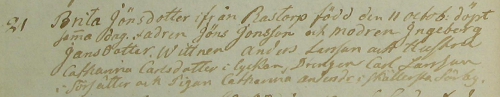 21 Brita Jönsdotter ifrån Rastorp född den 11 octob: döpt
sama Dag. fadren Jöns Jonsson och modren Ingeborg
Jansdotter. Wittnen Anders Larsson och Hustru
Catharina Carlsdotter i lyckan, Drengen Carl Larsson
i och Pigan Catharina i